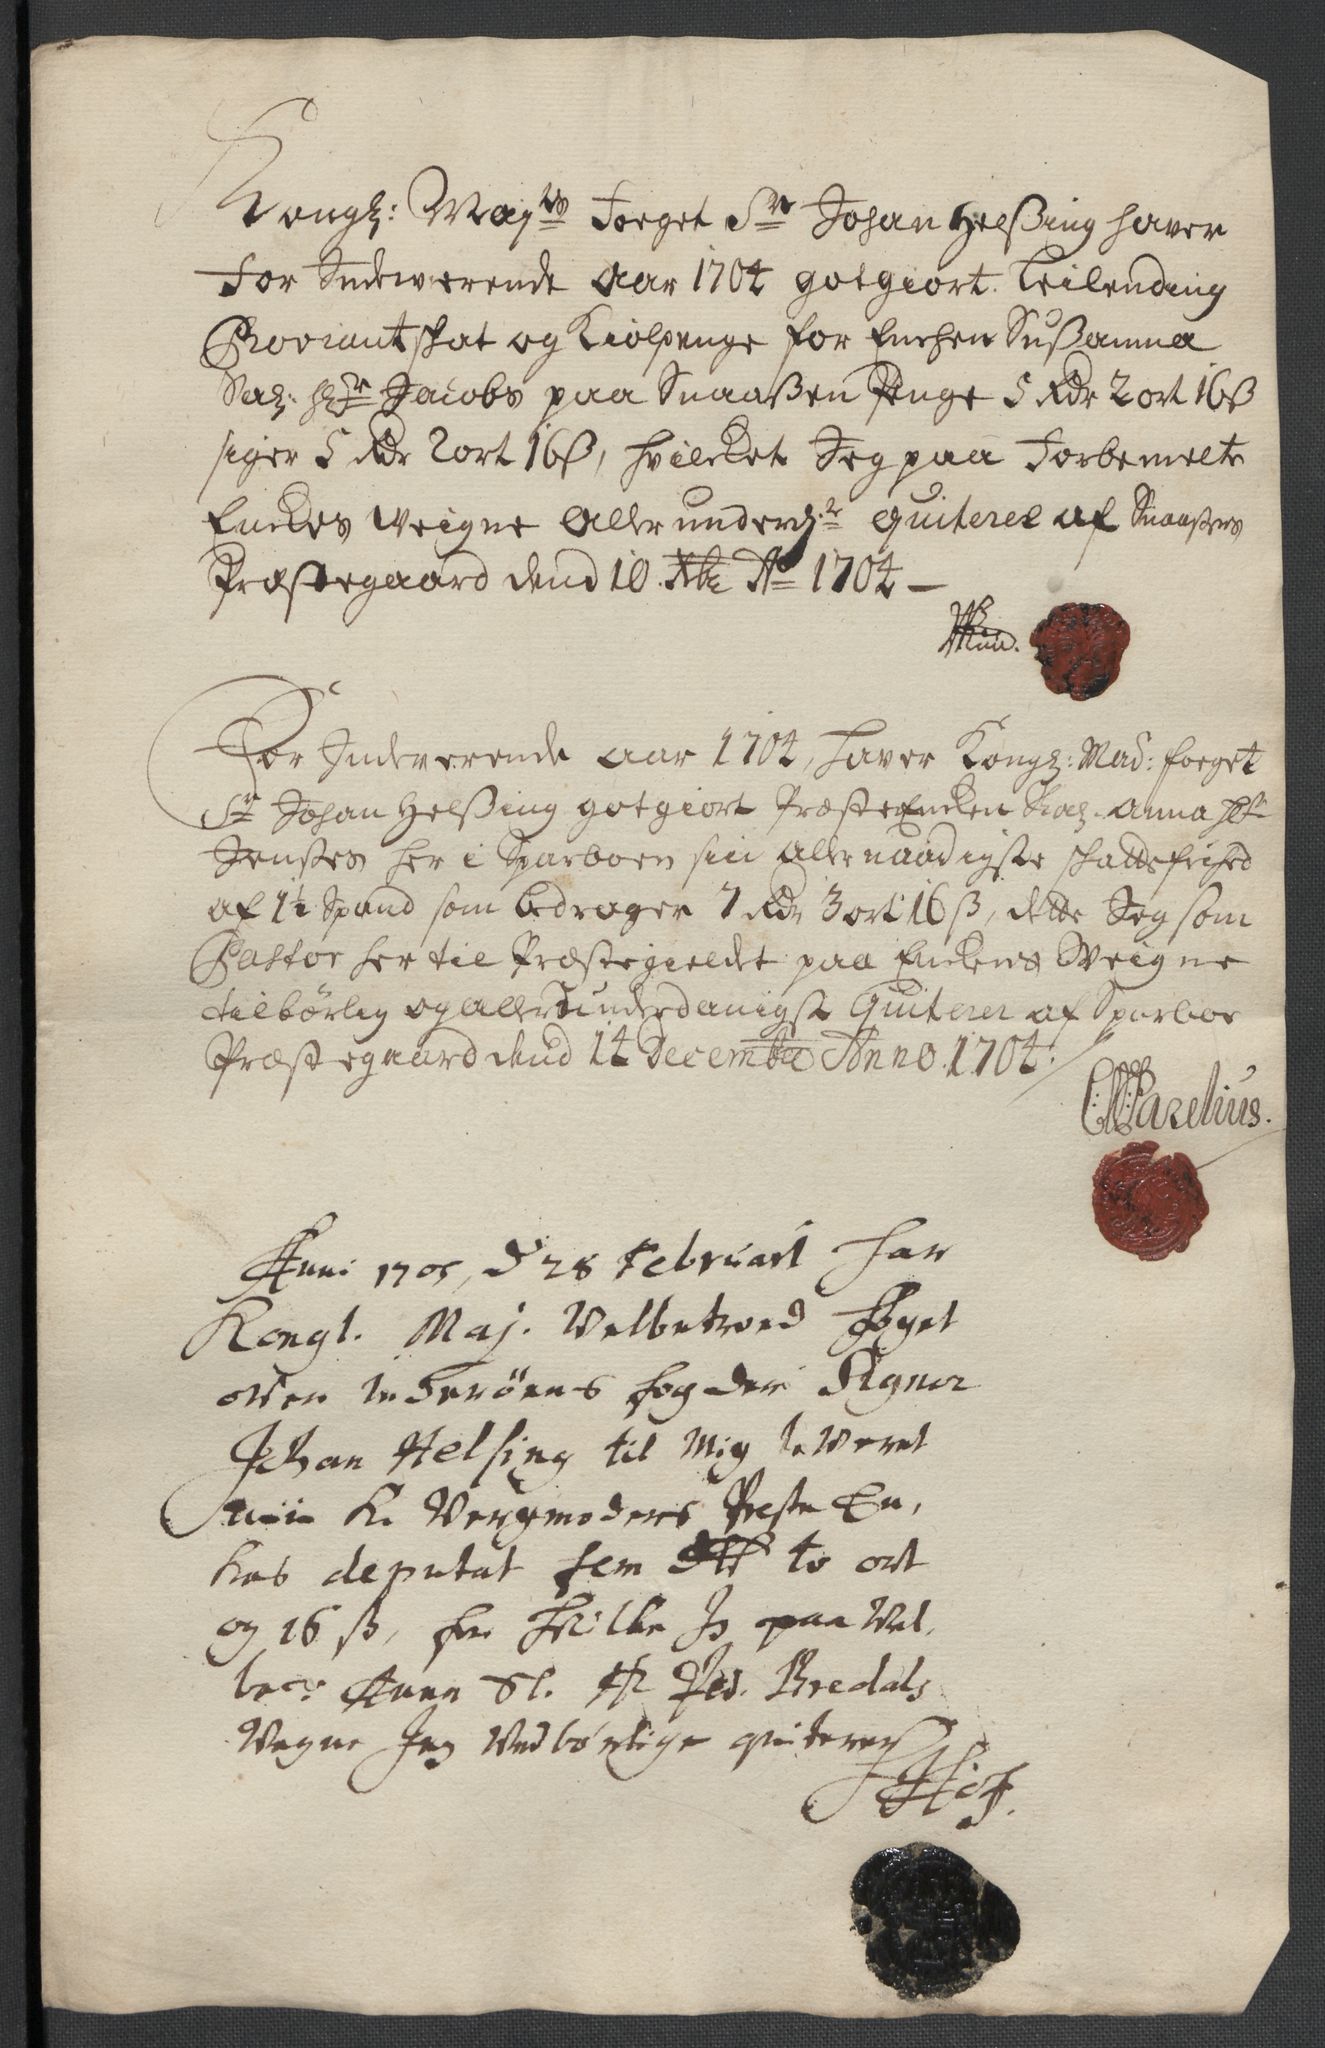 Kongl: Mayts Foeget Sr Johan Helßing haver
for Indewerende aar 1704 gotgiort Leilending
Proviantskat og Kiølpenge for Enchen Sußanna
Sal: Hr Jacobs paa Snaaßen Penge 5 Rdr 2 ort 16 ß
siger 5 Rdr 2 ort 16 ß, hvilcket Jeg paa Forbemelte
Enckes Weigne Allerunderd:st quiterer af Snaaßens
Præstegaard dend 10 Xbr Ao 1704 –
For Indeverende aar 1704, haver Kongl: May: foeget
Sr Johan Helßing gotgiort Præste Encken Sal. Anna Hr
Jenßes her i Sparboen sin allernaadigste skattefrihed
af 1½ Spand som bedrager 7 Rdr 3 ort 16 ß, dette Jeg som
Pastor her til Præstegieldet paa Enckens Weigne
tilbørlig og allerunderdanigst Quiterer af Sparboe
Præstegaard dend 14 Decembr Anno 1704.
Parelius.
Anno 1705, d 28 Februari har
Kongl. Maj. Velbetroed Foget
over Inderøens fogderi Signor
Johan Helsing til Mig leveret
min K. Vermoders Præste En,
kes deputat fem Rdr to ort
og 16 ß, for hvilke Js paa Vel,
be: Anna Sl. Hr Ped. Bredals
Vegne Jeg Vedbørlige quiterer
Hof.